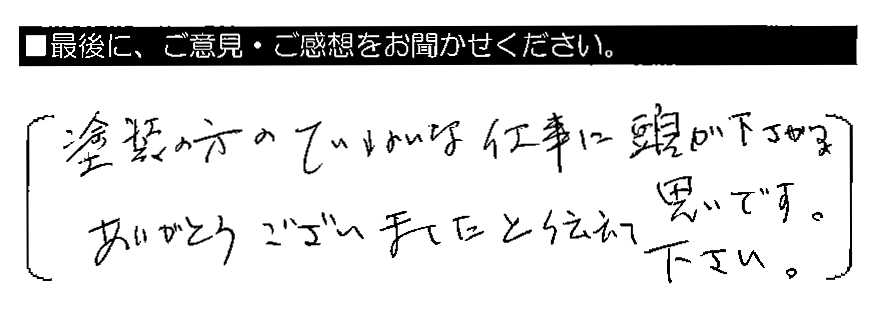 ■最後に、ご意見・ご感想をお聞かせください。
塗装の方のていねいな仕事に頭が下さがる
思いです。
ありがとうございましたと伝えて
下さい。